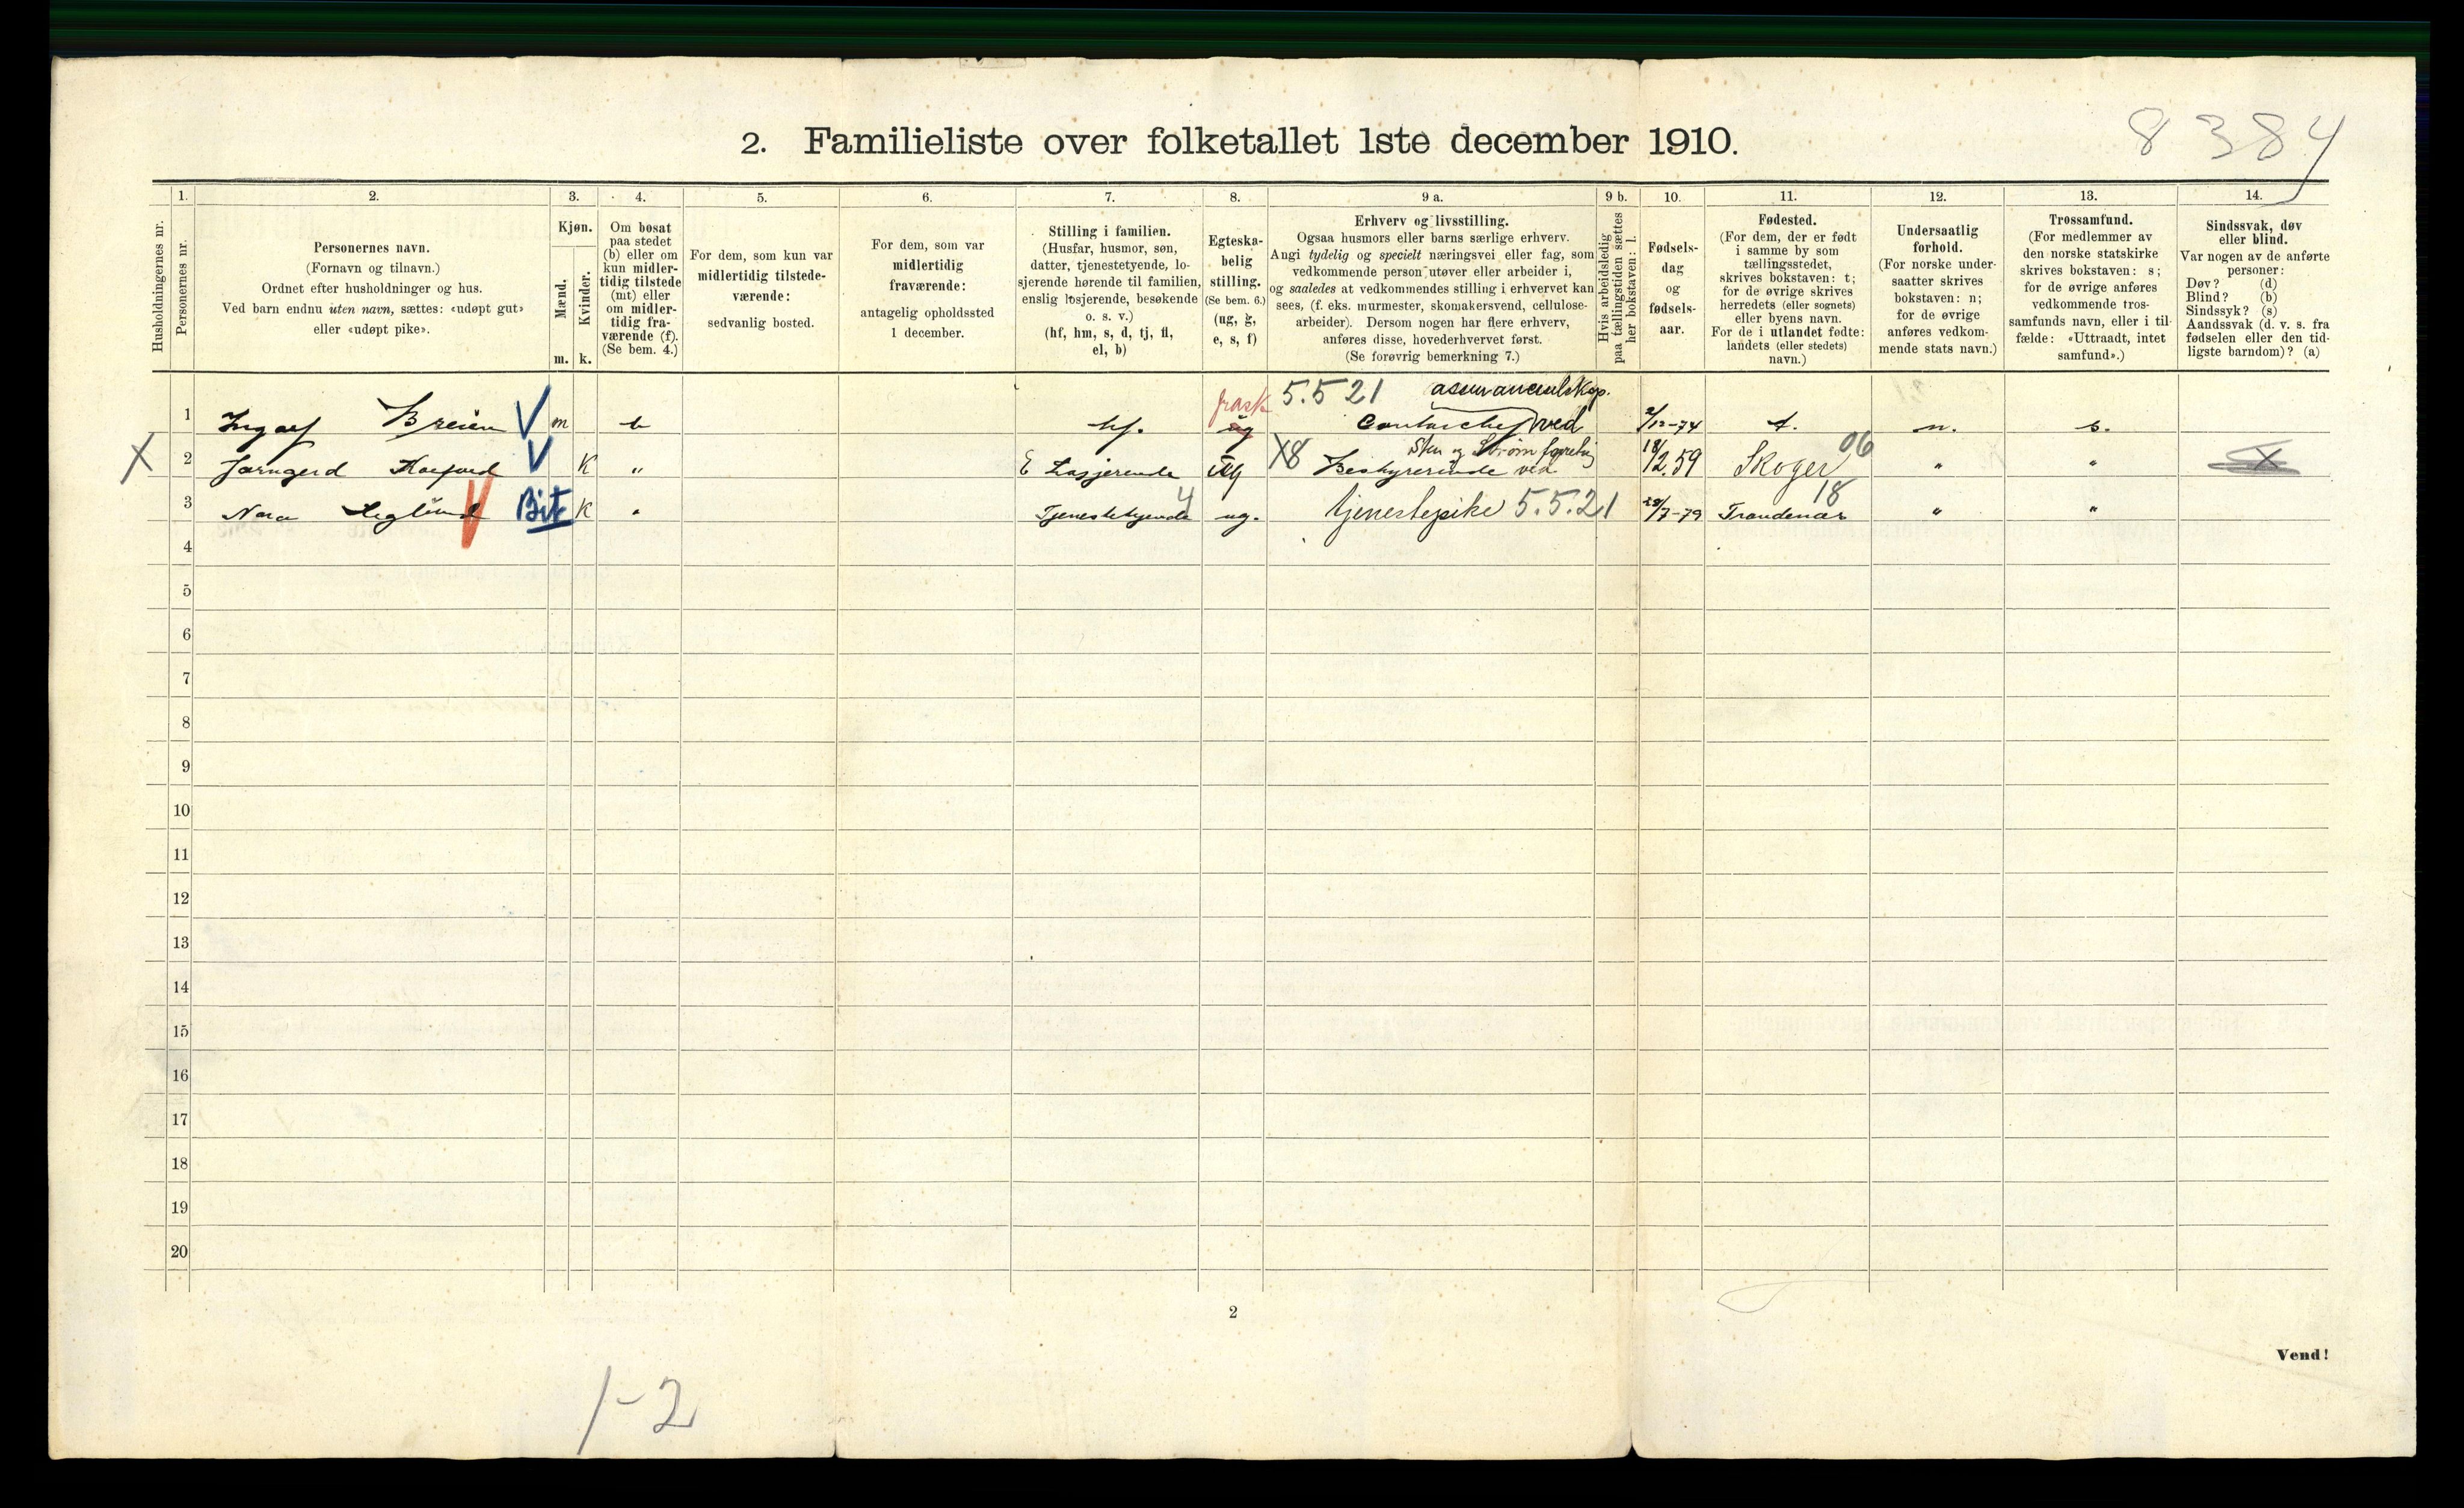 8 384
2. Familieliste over folketallet 1ste december 1910.
Husholdningernes nr.
1.
Personernes nr.
2.
Personernes navn.
(Fornavn og tilnavn.)
Ordnet efter husholdninger og hus.
Ved barn endnu uten navn, sættes: «udøpt gut»
eller «udøpt pike».
3.
Kjøn.
Mænd.
Kvinder.
m. k.
4.
Om bosat
paa stedet
(b) eller om
kun midler-
tidig tilstede
(mt) eller
om midler-
tidig fra-
værende (f).
(Se bem. 4.)
5.
For dem, som kun var
midlertidig tilstede-
værende:
sedvanlig bosted.
6.
For dem, som var
midlertidig
fraværende:
antagelig opholdssted
1 december.
7.
Stilling i familien.
(Husfar, husmor, søn,
datter, tjenestetyende, lo-
sjerende hørende til familien,
enslig losjerende, besøkende
o. s. v.)
(hf, hm, s, d, tj, fl,
el, b)
8.
Egteska-
belig
stilling.
(Se bem. 6.)
(ug, g,
e, s, f)
9 a.
Erhverv og livsstilling.
Ogsaa husmors eller barns særlige erhverv.
Angi tydelig og specielt næringsvei eller fag, som
vedkommende person utøver eller arbeider i,
og saaledes at vedkommendes stilling i erhvervet kan
sees, (f. eks. murmester, skomakersvend, cellulose-
arbeider). Dersom nogen har flere erhverv,
anføres disse, hovederhvervet først.
(Se forøvrig bemerkning 7.)
9 b.
Hvis arbeidsledig
paa tællingstiden sættes
her bokstaven: l.
10.
Fødsels-
dag
og
fødsels-
aar.
11.
Fødested.
(For dem, der er født
i samme by som
tællingsstedet,
skrives bokstaven: t;
for de øvrige skrives
herredets (eller sognets)
eller byens navn.
For de i utlandet fødte:
landets (eller stedets)
navn.)
12.
Undersaatlig
forhold.
(For norske under-
saatter skrives
bokstaven: n;
for de øvrige
anføres vedkom-
mende stats navn.)
13.
Trossamfund.
(For medlemmer av
den norske statskirke
skrives bokstaven: s;
for de øvrige anføres
vedkommende tros-
samfunds navn, eller i til-
fælde: «Uttraadt, intet
samfund».)
14.
Sindssvak, døv
eller blind.
Var nogen av de anførte
personer:
Døv? (d)
Blind? (b)
Sindssyk? (s)
Aandssvak (d. v. s. fra
fødselen eller den tid-
ligste barndom)? (a)
5.5 21
1 Breien V m b hf. ug ved 2/12-74 t. n. s.
X 2 V K " E Losjerende Ug X8 Bestyrerinde ved 18/2.59 Skoger 06 " "
3 Nora V Bit K " Tjenestetyende 4 ug. tjenestepike 5.5.21 28/7-79 Trondenæs 18 " "
4
5
6
7
8
9
10
11
12
13
14
15
16
17
18
19
20
2
Vend!
1-2